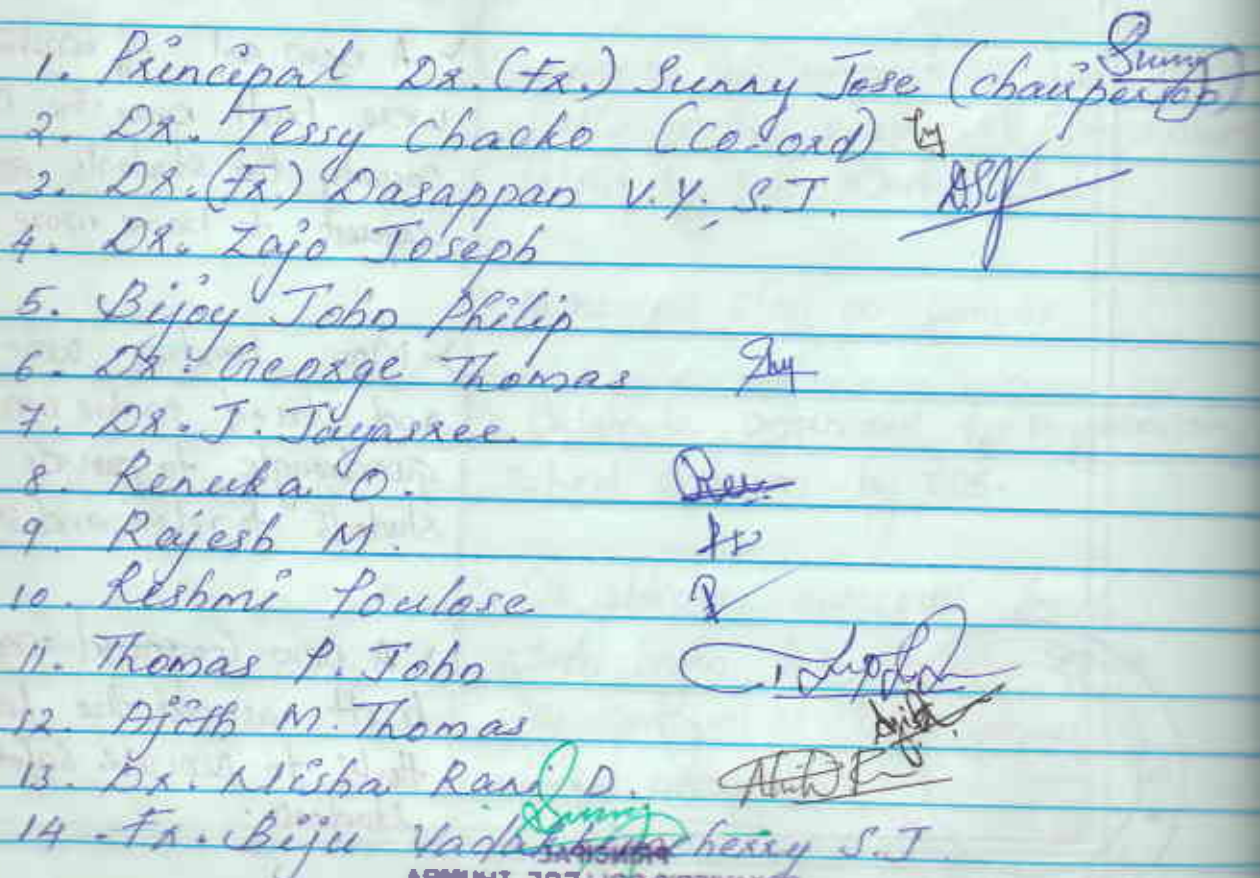 1. Principal Dr. (Fr.) Sunny Jose (chairperson) Sunny
2. Dr. Tessy Chacko (Co-ord)
3. Dr. (Fr.) Dasappan V.Y. S.J.
4. Dr. Lajo Joseph
5. Bijoy John Philip
6. Dr. George Thomas
7. Dr. J. Jayasree
8. Renuka O.
9. Rajesh M.
10. Reshmi Poulose
11. Thomas P. John
12. Ajith M. Thomas Ajith
13. Dr. Nisha Rani D.
Sunny
14. Fr. Biju S.J.
PRINCIPAL